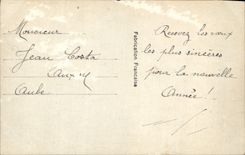 Monsieur
Jean Costa
Aube
Fabrication Française
Recevez les vœux
les plus sincères
pour la nouvelle
Année !